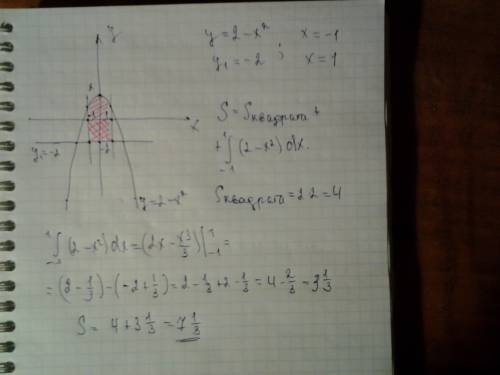 y
y = 2 - x²
x = -1
y₁ = -2 ;
x = 1
x
y₁ = -2
-2
y = 2 - x²
S = Sквадрат +
+ ∫₋₁¹ (2 - x²) dx.
Sквадрата = 2·2 = 4
∫₋₁¹ (2 - x²) dx = (2x - x³/3) |₋₁¹ =
= (2 - 1/3) - (-2 + 1/3) = 2 - 1/3 + 2 - 1/3 = 4 - 2/3 = 3 1/3
S = 4 + 3 1/3 = 7 1/3